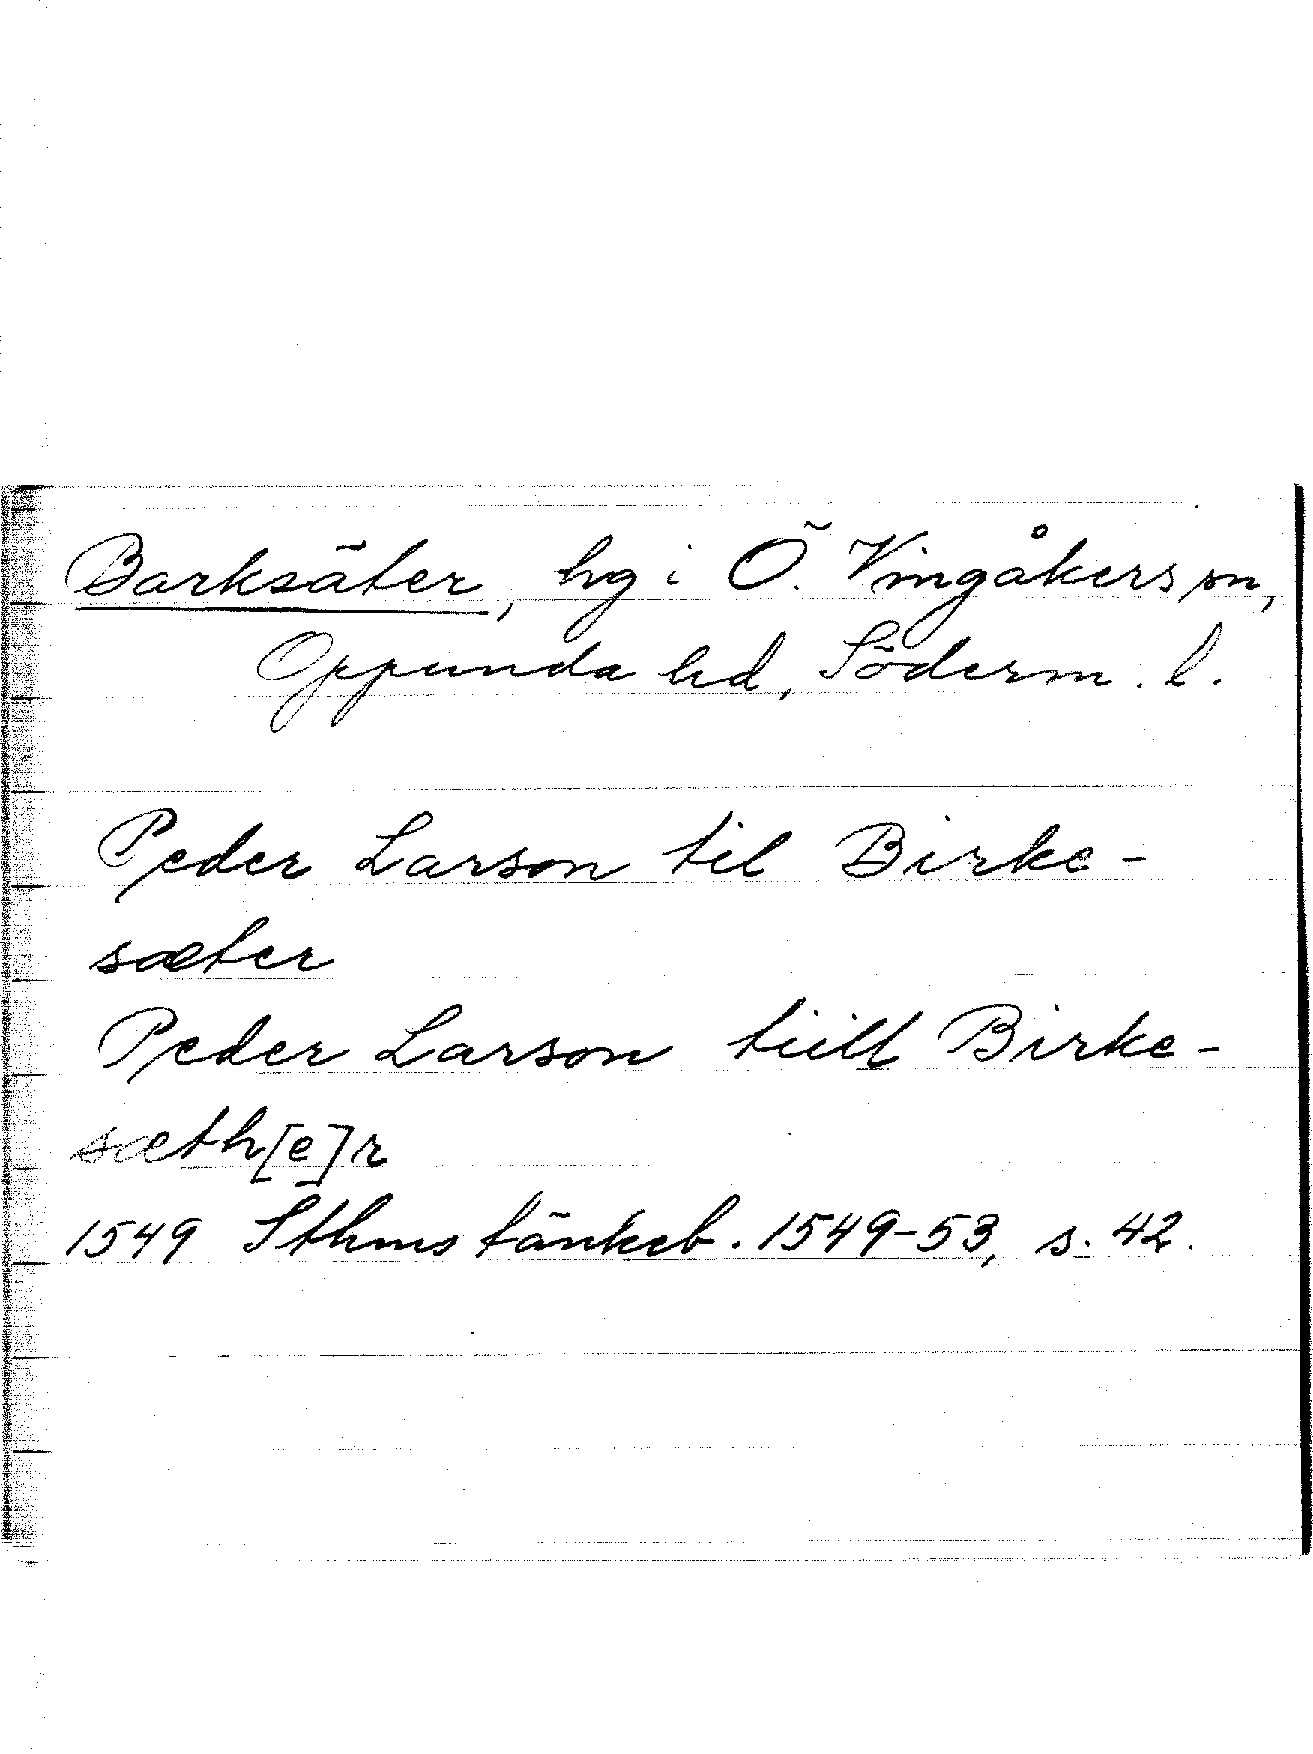 Barksäter, hg i Ö. Vingåkers sn,
Oppunda hd, Söderm. l.
Peder Larson til Birke-
sæter
Peder Larson tiill Birke-
sæth[e]r
1549 Sthms tänkeb. 1549-53, s. 42.